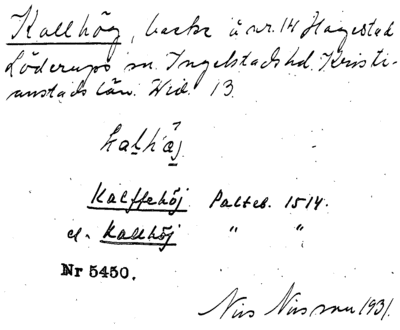 Kallhög, backe å nr. 14 Hagestad
Löderups sn. Ingelstads hd. Kristi-
anstads län. Wid. 13.
kalhǻj
Kalffehöj Palteb. 1514.
el. Kallhöj " "
Nr 5450.
Nils Nilsson 1931.